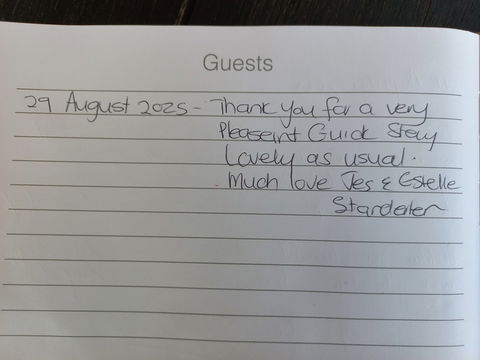 Guests
29 August 2025 - Thank you for a very
Pleaseint Quick Stay
Lovely as usual.
Much love Jes & Estelle